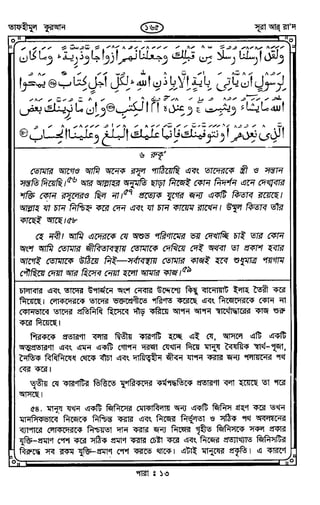 তাফহীমুল কুরআন
১৬৫
সূরা আর্ রা'দ
وَلَقَدْ أَرْسَلْنَا رُسُلًا مِّن قَبْلِكَ وَجَعَلْنَا لَهُمْ أَزْوَاجًا وَذُرِّيَّةً ۚ وَمَا كَانَ
لِرَسُولٍ أَن يَأْتِيَ بِآيَةٍ إِلَّا بِإِذْنِ اللَّهِ ۗ لِكُلِّ أَجَلٍ كِتَابٌ ۝ يَمْحُوا
اللَّهُ مَا يَشَاءُ وَيُثْبِتُ ۖ وَعِندَهُ أُمُّ الْكِتَابِ ۝ وَإِن مَّا نُرِيَنَّكَ بَعْضَ
الَّذِي نَعِدُهُمْ أَوْ نَتَوَفَّيَنَّكَ فَإِنَّمَا عَلَيْكَ الْبَلَاغُ وَعَلَيْنَا الْحِسَابُ ۝
৬ রুকূ'
তোমার আগেও আমি অনেক রসূল পাঠিয়েছি এবং তাদেরকে স্ত্রী ও সন্তান
সন্ততি দিয়েছি।৫৬ আর আল্লাহর অনুমতি ছাড়া নিজেই কোন নিদর্শন এনে দেখাবার
শক্তি কোন রসূলেরও ছিল না।৫৭ প্রত্যেক যুগের জন্য একটি কিতাব রয়েছে।
আল্লাহ যা চান নিশ্চিহ্ন করে দেন এবং যা চান কায়েম রাখেন। উম্মুল কিতাব তাঁর
কাছেই আছে।৫৮
হে নবী! আমি এদেরকে যে অশুভ পরিণামের ভয় দেখাচ্ছি চাই তার কোন
অংশ আমি তোমার জীবিতাবস্থায় তোমাকে দেখিয়ে দেই অথবা তা প্রকাশ হবার
আগেই তোমাকে উঠিয়ে নিই—সর্বাবস্থায় তোমার কাজই হবে শুধুমাত্র পয়গাম
পৌঁছিয়ে দেয়া আর হিসেব নেয়া হলো আমার কাজ।৫৯
চালাবার এবং তাদের উপার্জনে অংশ নেবার উদ্দেশ্যে কিছু বানোয়াট ইলাহ তৈরী করে
নিয়েছে। লোকদেরকে তাদের ভক্তশ্রেণীতে পরিণত করেছে এবং নিজেদেরকে কোন না
কোনভাবে তাদের প্রতিনিধি হিসেবে দাঁড় করিয়ে আপন আপন স্বার্থোদ্ধারের কাজ শুরু
করে দিয়েছে।
শিরককে প্রতারণা বলার দ্বিতীয় কারণটি হচ্ছে এই যে, আসলে এটি একটি
আত্মপ্রতারণা এবং এমন একটি গোপন দরজা যেখান দিয়ে মানুষ বৈষয়িক স্বার্থ-পূজা,
নৈতিক বিধিনিষেধ থেকে বাঁচা এবং দায়িত্বহীন জীবন যাপন করার জন্য পলায়নের পথ
বের করে।
তৃতীয় যে কারণটির ভিত্তিতে মুশরিকদের কর্মপদ্ধতিকে প্রতারণা বলা হয়েছে তা পরে
আসছে।
৫৪. মানুষ যখন একটি জিনিসের মোকাবিলায় অন্য একটি জিনিস গ্রহণ করে তখন
মানসিকভাবে নিজেকে নিশ্চিন্ত করার এবং নিজের নির্ভুলতা ও সঠিক পথ অবলম্বনের
ব্যাপারে লোকদেরকে নিশ্চয়তা দান করার জন্য নিজের গৃহীত জিনিসকে সকল প্রকার
যুক্তি-প্রমাণ পেশ করে সঠিক প্রমাণ করার চেষ্টা করে এবং নিজের প্রত্যাখ্যাত জিনিসটির
বিরুদ্ধে সব রকম যুক্তি-প্রমাণ পেশ করতে থাকে। এটাই মানুষের প্রকৃতি। এ কারণে
পারা : ১৩